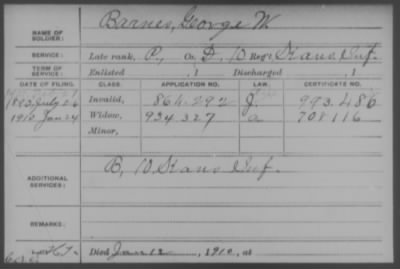 NAME OF SOLDIER: Barnes, George W.
SERVICE: Late rank, P, Co. D, 10 Reg't Kans. Inf.
TERM OF SERVICE: Enlisted , 1 Discharged , 1
DATE OF FILING. CLASS. APPLICATION NO. LAW. CERTIFICATE NO.
July 26 Invalid, 864.292 J. 993.486
1910 Jan 24 Widow, 934 327 a 708116
Minor,
ADDITIONAL SERVICES: B, 10 Kans Inf.
REMARKS:
Died Jan 12, 1910, at